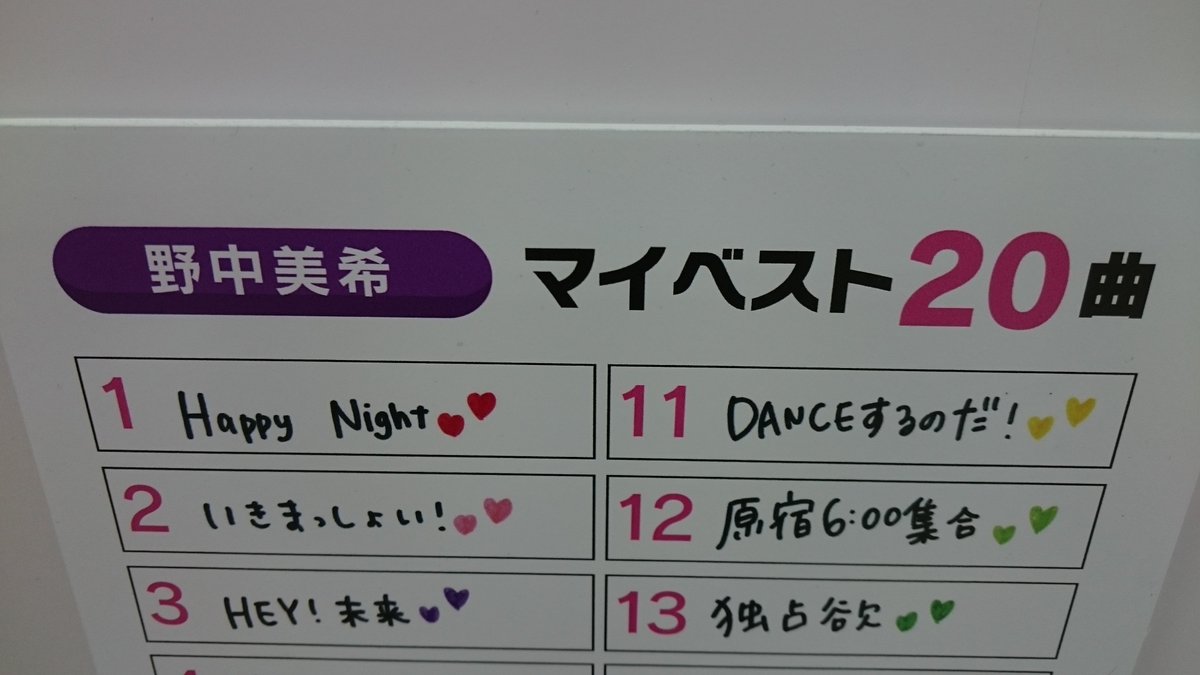 野中美希 マイベスト20曲
1 Happy Night
2 いきまっしょい!
3 HEY!未来
11 DANCEするのだ!
12 原宿6:00集合
13 独占欲